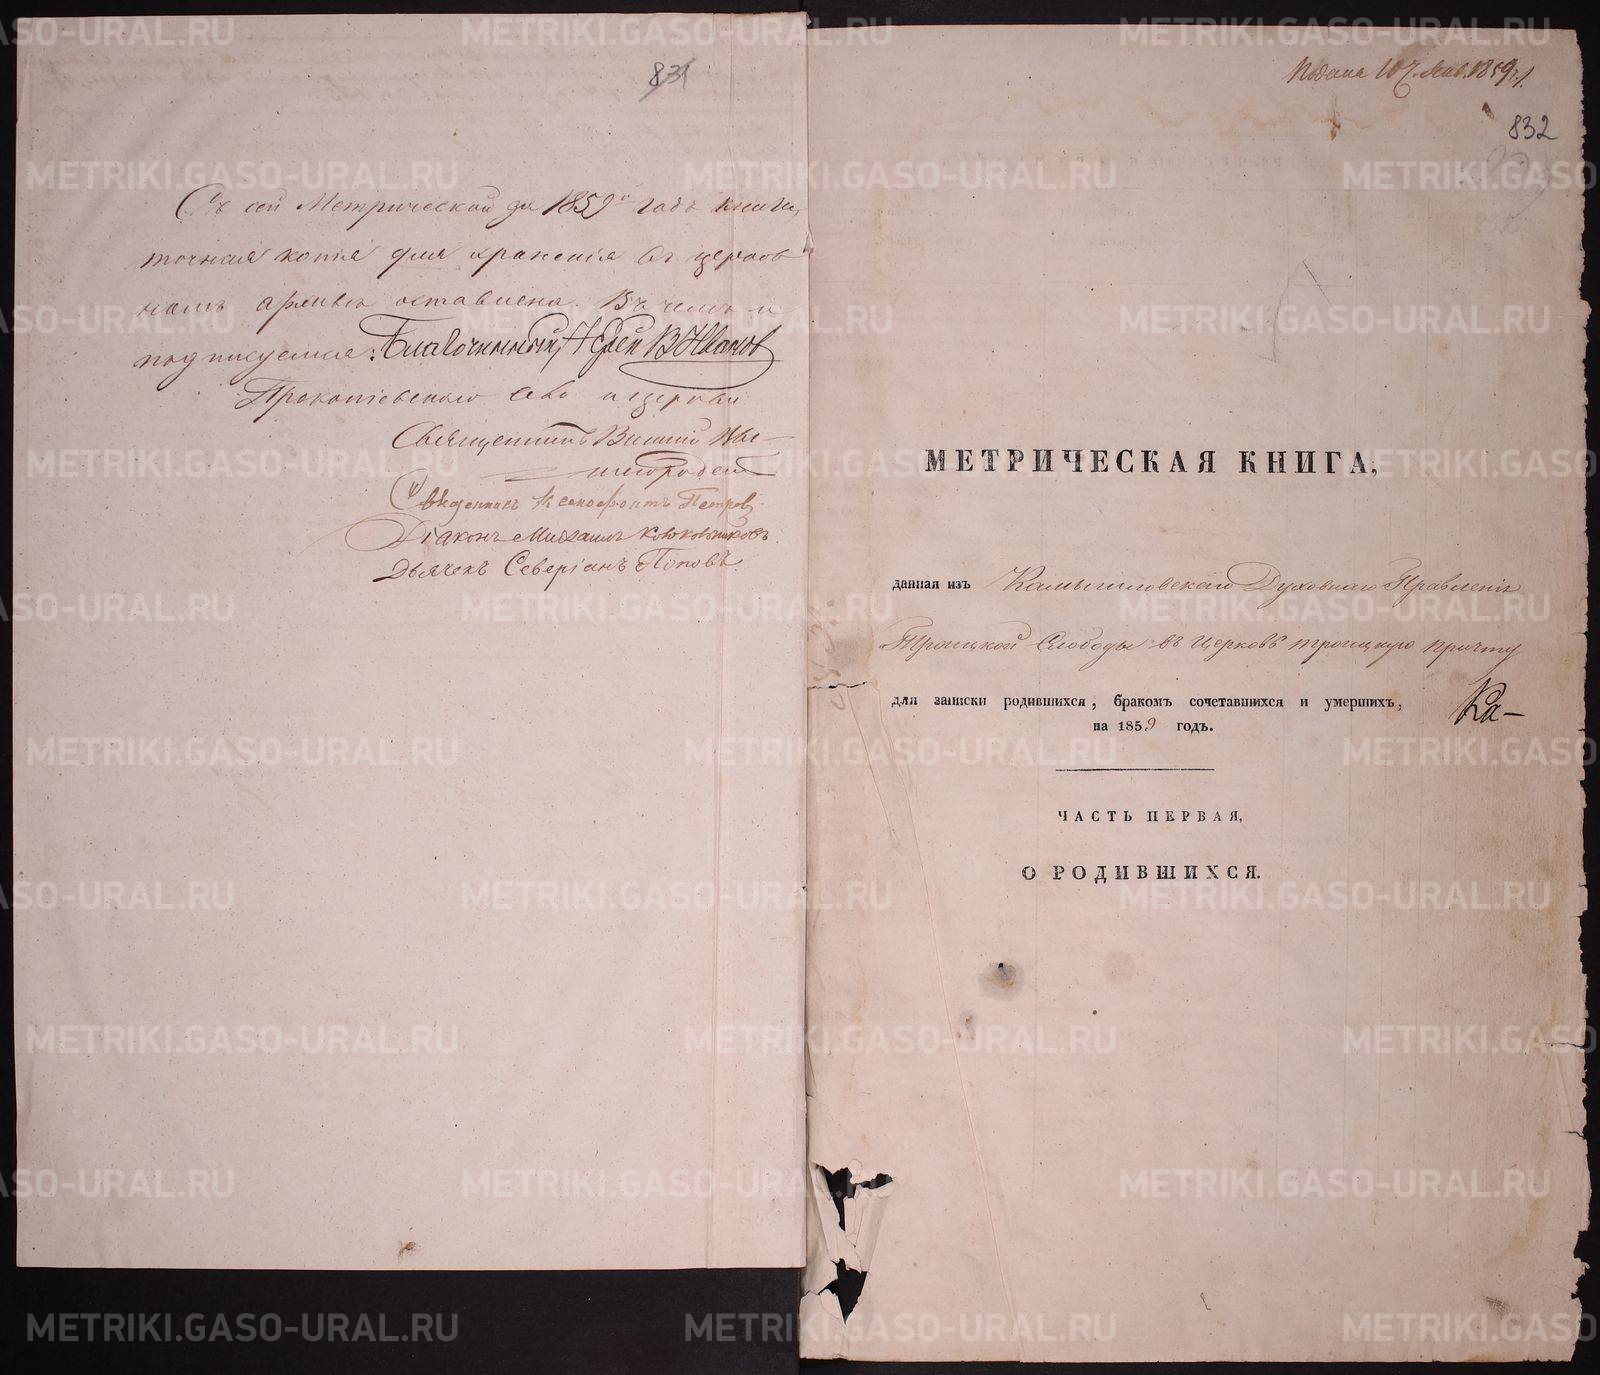 831
Съ сей Метрической за 1859й годъ книги,
точная копія для храненія въ церков
номъ архивѣ оставлена. Въ чемъ и
подписуемся: Благочинный, Іерей В Иванов
Прокопіевской церкви
Священникъ
Священникъ Ксенофонтъ Петров
Діаконъ Михаилъ Конюховъ
Дьячекъ Северіанъ Поповъ.
Подана 10 1859 г.
832
МЕТРИЧЕСКАЯ КНИГА,
данная изъ Камышловскаго Духовнаго Правленія
Троицкой Слободы въ Церковь Троицкую причту
для записки родившихся, бракомъ сочетавшихся и умершихъ,
на 1859 годъ.
Ка-
ЧАСТЬ ПЕРВАЯ,
О РОДИВШИХСЯ.
METRIKI.GASO-URAL.RU